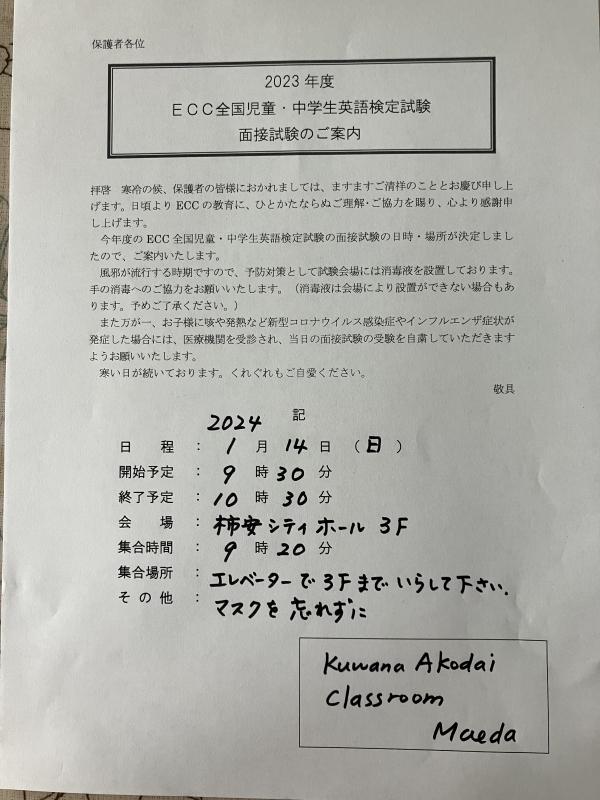 保護者各位
2023 年度
ＥＣＣ全国児童・中学生英語検定試験
面接試験のご案内
拝啓　寒冷の候、保護者の皆様におかれましては、ますますご清祥のこととお慶び申し上
げます。日頃より ECC の教育に、ひとかたならぬご理解・ご協力を賜り、心より感謝申
し上げます。
今年度の ECC 全国児童・中学生英語検定試験の面接試験の日時・場所が決定しまし
たので、ご案内いたします。
風邪が流行する時期ですので、予防対策として試験会場には消毒液を設置しております。
手の消毒へのご協力をお願いいたします。（消毒液は会場により設置ができない場合もあ
ります。予めご了承ください。）
また万が一、お子様に咳や発熱など新型コロナウイルス感染症やインフルエンザ症状が
発症した場合には、医療機関を受診され、当日の面接試験の受験を自粛していただきます
ようお願いいたします。
寒い日が続いております。くれぐれもご自愛ください。
敬具
記
2024
日　程　：　1　月　14　日　（日）
開始予定　：　9　時 30 分
終了予定　：　10　時　30 分
会　場　：　柿安シティホール 3F
集合時間　：　9　時 20 分
集合場所　：　エレベーターで 3F までいらして下さい.
その他　：　マスクを忘れずに
Kuwana Akodai
Classroom
Maeda